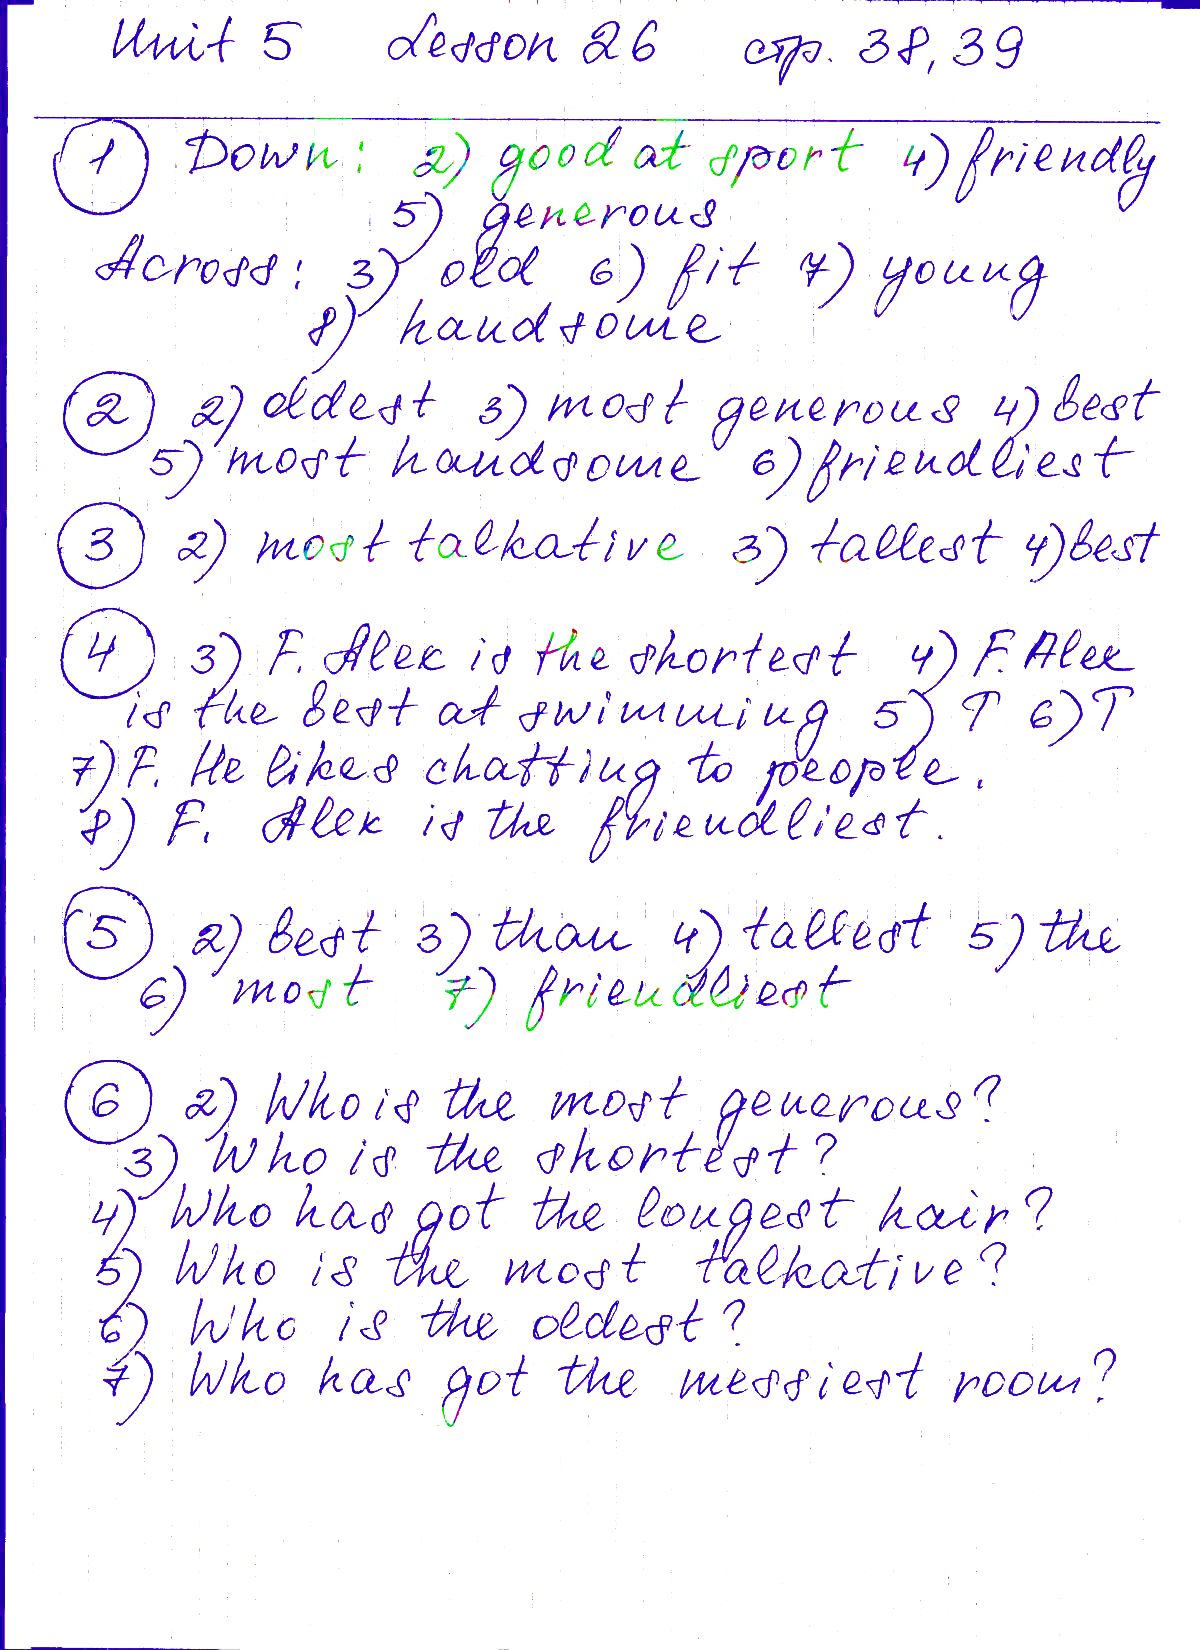 Unit 5 Lesson 26 стр. 38, 39
1 Down: 2) good at sport 4) friendly
5) generous
Across: 3) old 6) fit 7) young
8) handsome
2 2) oldest 3) most generous 4) best
5) most handsome 6) friendliest
3 2) most talkative 3) tallest 4) best
4 3) F. Alex is the shortest 4) F. Alex
is the best at swimming 5) T 6) T
7) F. He likes chatting to people.
8) F. Alex is the friendliest.
5 2) best 3) than 4) tallest 5) the
6) most 7) friendliest
6 2) Who is the most generous?
3) Who is the shortest?
4) Who has got the longest hair?
5) Who is the most talkative?
6) Who is the oldest?
7) Who has got the messiest room?